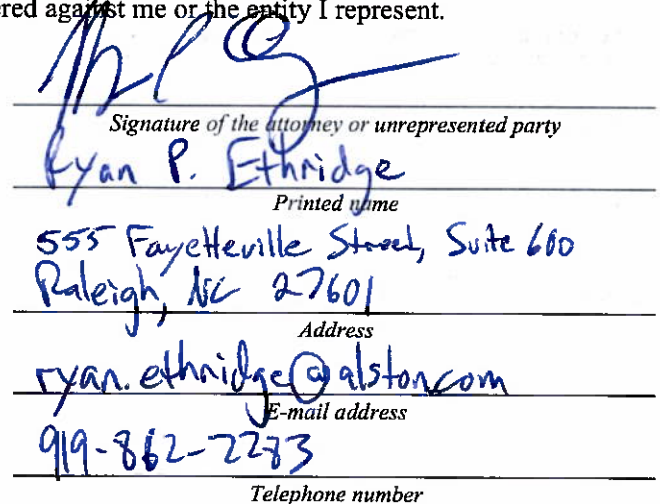 ered against me or the entity I represent.
Signature of the attorney or unrepresented party
Ryan P. Ethridge
Printed name
555 Fayetteville Street, Suite 600
Raleigh, NC 27601
Address
ryan.ethridge@alston.com
E-mail address
919-862-2283
Telephone number